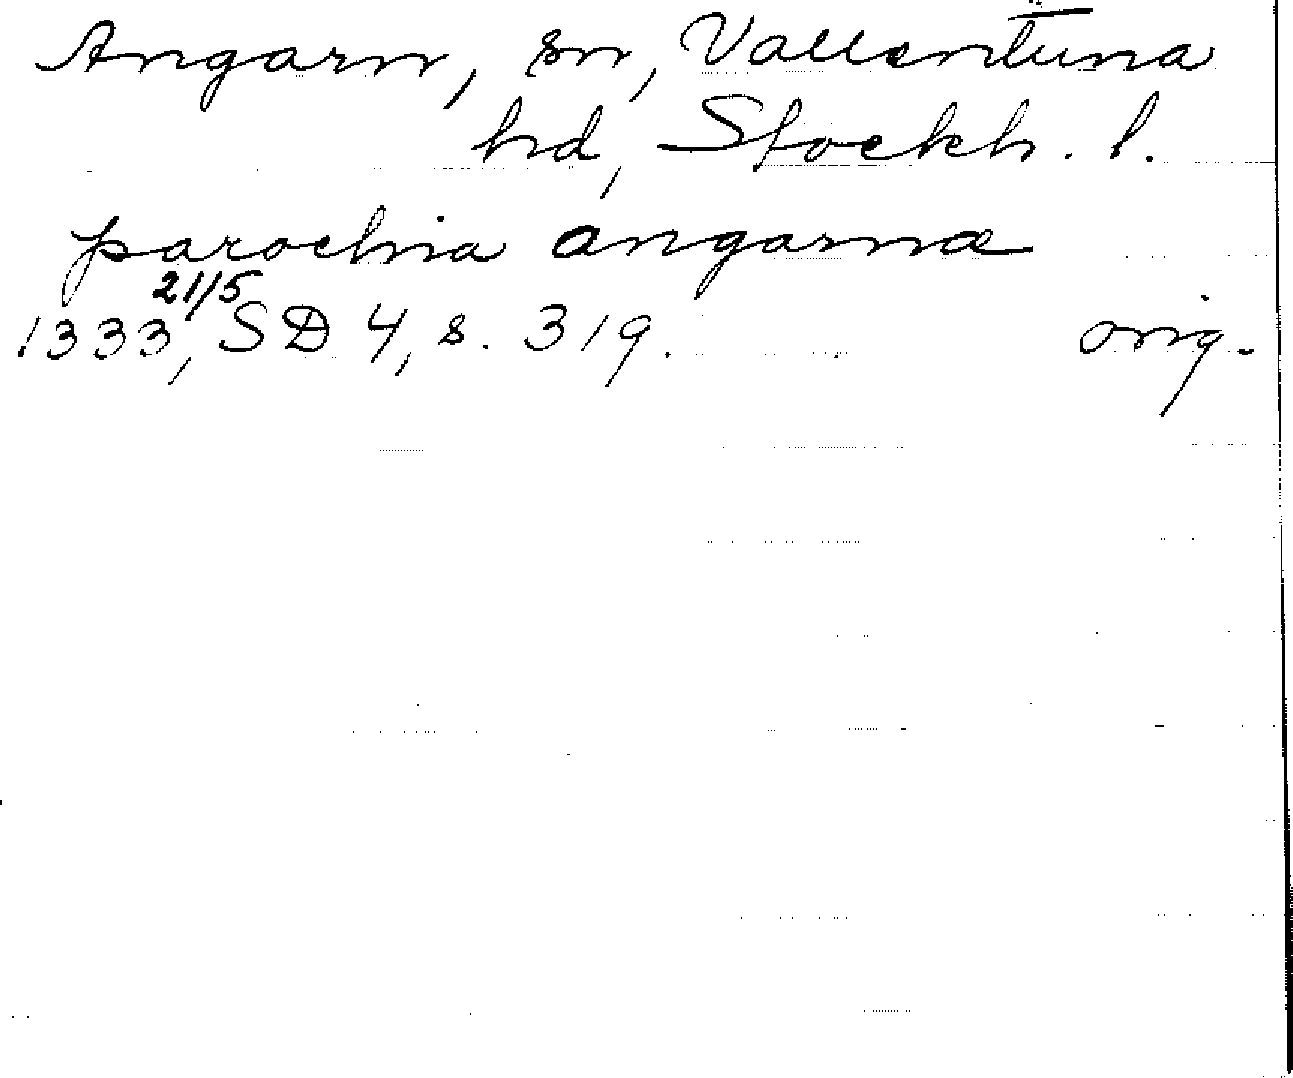 Angarn, sn, Vallentuna
hd, Stockh. l.
parochia angarnæ
21/5
1333, SD 4, s. 319. orig.